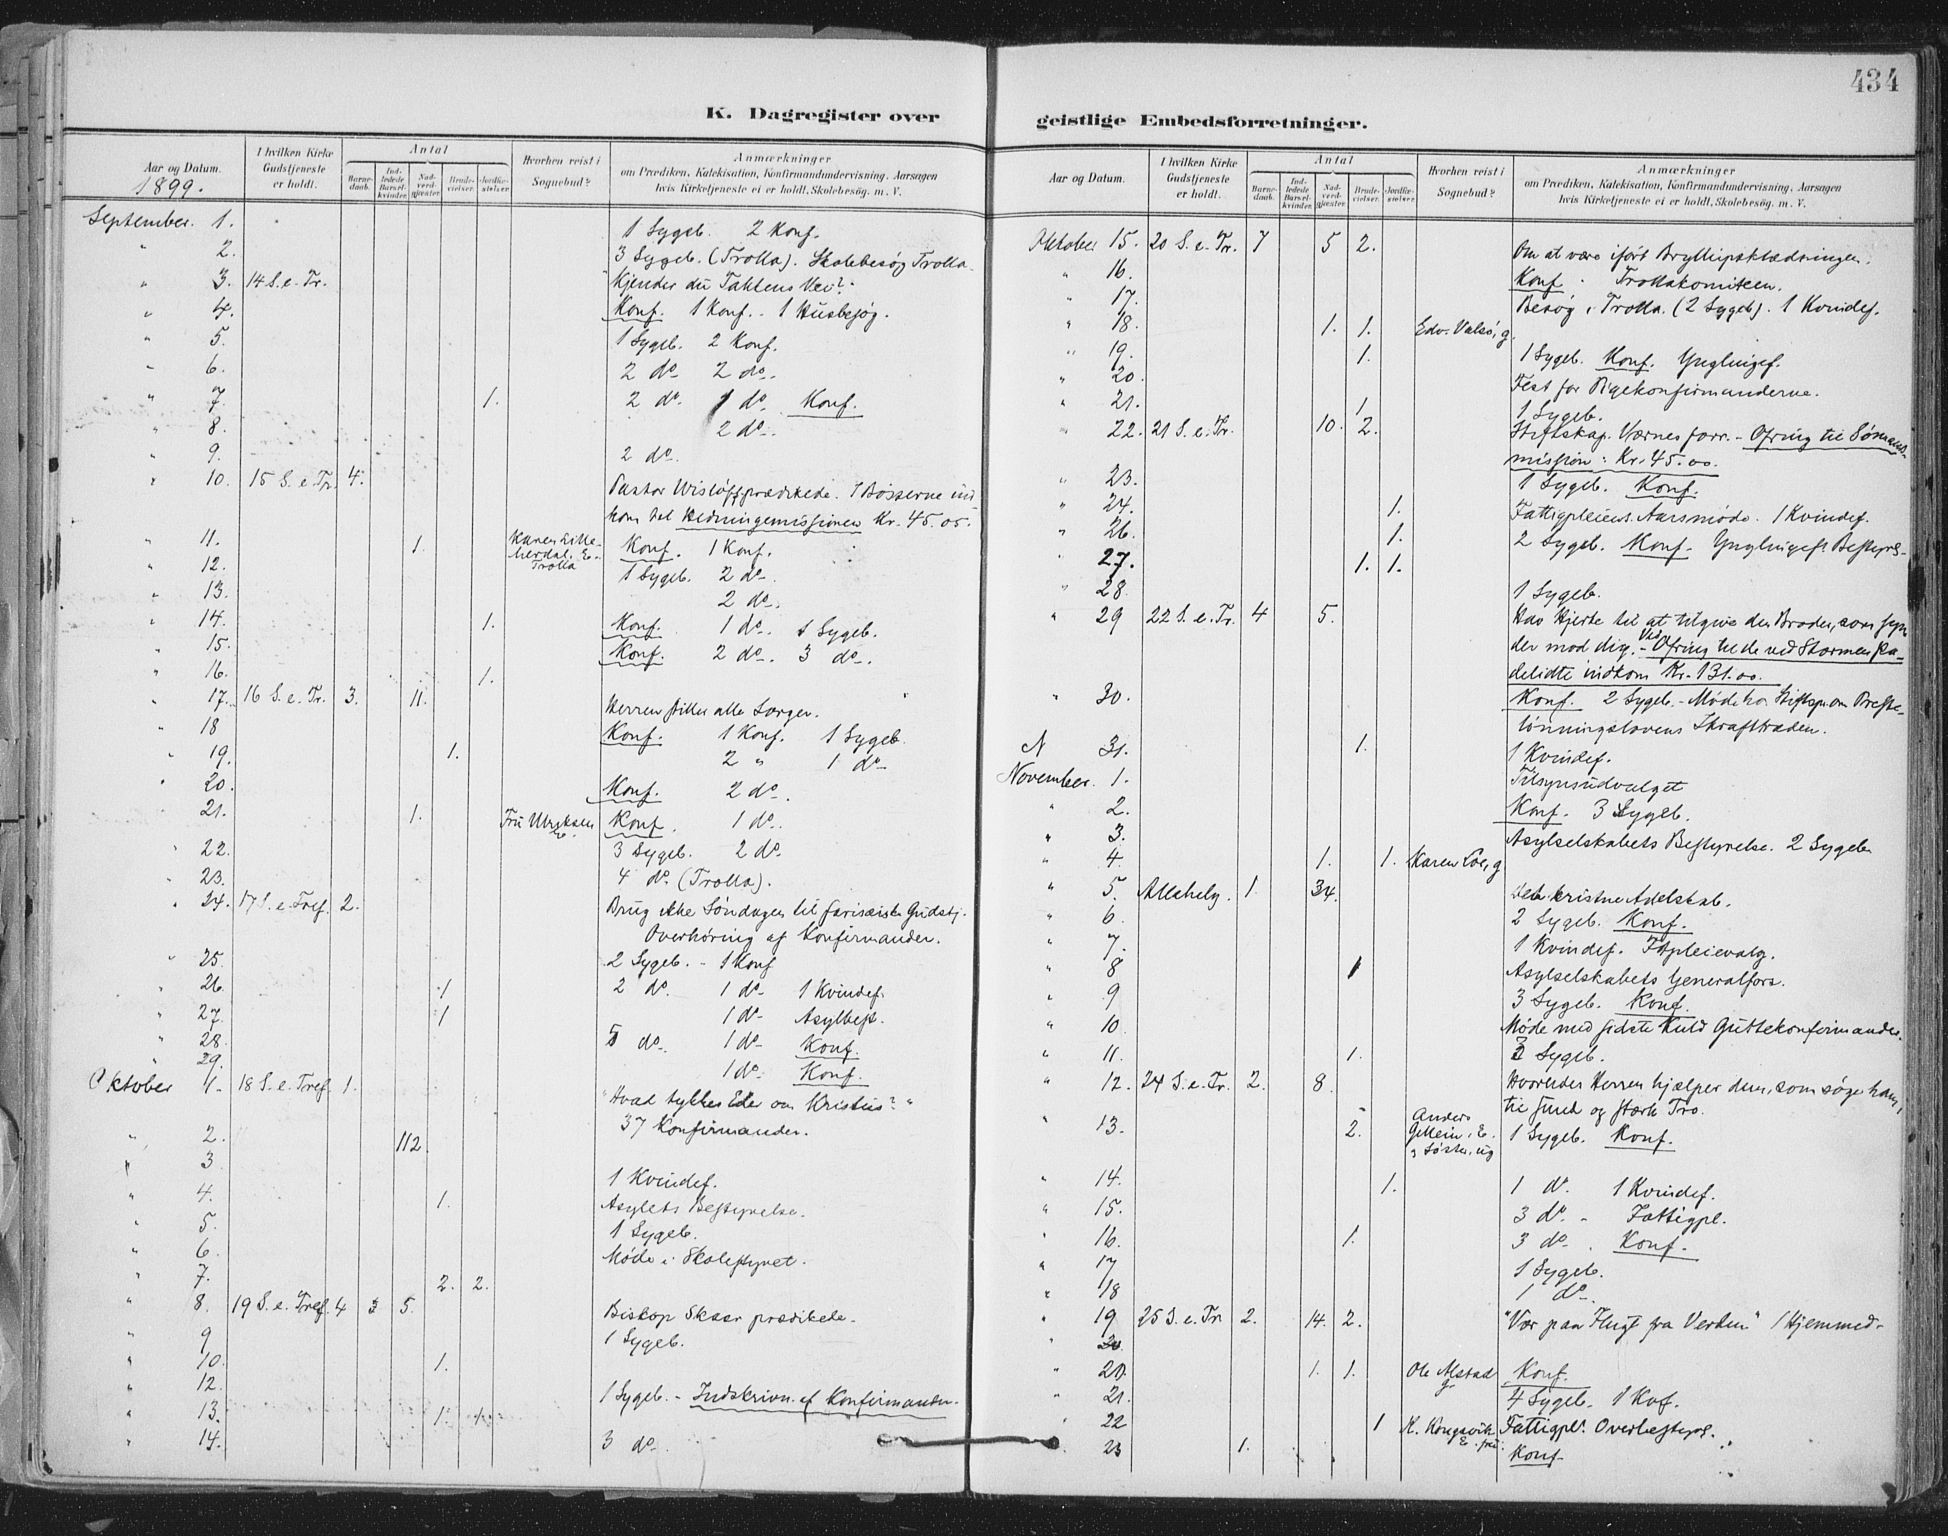 434
K. Dagregister over
Aar og Datum.
I hvilken Kirke Gudstjeneste er holdt.
Antal
Barne-daab.
Ind-ledede Barsel-kvinder.
Nad-verd-gjæster.
Brude-vielser.
Jordfæ-stelser.
Hvorhen reist i Sognebud?
Anmærkninger
om Prædiken, Katekisation, Konfirmandundervisning, Aarsagen
hvis Kirketjeneste ei er holdt, Skolebesøg. m. V.
1899.
September 1. 1 Sygeb. 2 Konf.
" 2. 3 Sygeb. (Trolla). Skolebesøg Trolla.
" 3. 14 S. e. Tr. Kjender du Takkens Vei?
" 4. Konf. 1 Konf. - 1 Husbesøg.
" 5. 1 Sygeb. 2 Konf.
" 6. 2 do 2 do.
" 7. 1. 2 do. 1 do. Konf.
" 8. 2 do.
" 9. 2 do.
" 10. 15 S. e. Tr. 4. Pastor Wisløff prædikede. I Bøsserne ind
kom til Hedningemissionen Kr. 45.05.
" 11. 1. Karen Lille-herdal. E. Trolla Konf. 1 Konf.
" 12. 1 Sygeb. 2 do.
" 13. 2 do.
" 14. 1. Konf. 1 do. 1 Sygeb.
" 15. Konf. 2 do. 3 do.
" 16. 1.
" 17. 16 S. e. Tr. 3. 11. Herren stiller alle Sorger.
" 18 Konf. 1 Konf. 1 Sygeb.
" 19. 1. 2 " 1 do
" 20. Konf. 2 do.
" 21. 1. Fru Ulriksen E. Konf. 1 do.
" 22. 3 Sygeb. 2 do.
" 23. 4 do. (Trolla).
" 24. 17 S. e. Tref. 2. Brug ikke Søndagen til farisæisk Gudstj.
Overhøring af Konfirmander.
" 25. 2 Sygeb. - 1 Konf
" 26. 1 2 do. 1 do 1 Kvindef.
" 27. 1 1 do Asylbest.
" 28. 5 do. 1 do Konf.
" 29. 1 do. Konf.
Oktober 1. 18 S. e. Tref. 1. "Hvad tykkes Eder om Kristus?"
37 Konfirmander.
" 2. 112.
" 3. 1 Kvindef.
" 4. 1. Asylets Bestyrelse.
" 5. 1 Sygeb.
" 6. Møde i Skolestyret.
" 7. 2. 2.
" 8. 19 S. e. Tref. 4 3 5. Biskop Skaar prædikede.
" 9 1 Sygeb.
" 10. 1.
" 12. 1 Sygeb. - Indskrivn. af Konfirmander.
" 13. 1. 1.
" 14. 3 do
geistlige Embedsforretninger.
Aar og Datum.
I hvilken Kirke Gudstjeneste er holdt.
Antal
Barne-daab.
Ind-ledede Barsel-kvinder.
Nad-verd-gjæster.
Brude-vielser.
Jordfæ-stelser.
Hvorhen reist i Sognebud?
Anmærkninger
om Prædiken, Katekisation, Konfirmandundervisning, Aarsagen
hvis Kirketjeneste ei er holdt, Skolebesøg. m. V.
Oktober 15. 20 S. e. Tr. 7 5 2. Om at være iført Bryllupsklædningen.
" 16. Konf. Trollakomiteen.
" 17. Besøg i Trolla. (2 Sygeb). 1 Kvindef.
" 18. 1. 1. Edv. Valsö, g.
" 19. 1. 1 Sygeb. Konf. Ynglingef.
" 20. Fest for Pigekonfirmanderne.
" 21. 1 1 Sygeb.
" 22. 21 S. e. Tr. 10. 2. Stiftskap. Værnes forr. - Ofring til Sømands-
mission: Kr. 45.00.
" 23. 1 Sygeb. Konf.
" 24. 1. Fattigpleiens Aarsmøde. 1 Kvindef.
" 26. 1. 2 Sygeb. Konf. Ynglingef. Bestyrs-
" 27. 1. 1.
" 28. 1 Sygeb.
" 29 22 S. e. Tr. 4 5. Hav Hjerte til at tilgive den Broder, som syn
der mod dig. - Ved Ofring til de ved Stormen ska-
delidte indkom Kr. 131.00.
" 30. Konf. 2 Sygeb. - Møde hos Stiftspr. om Preste-
lønningslovens Ikrafttræden.
" 31. 1. 1 Kvindef.
November 1. Tilsynsudvalget
" 2. Konf. 3 Sygeb.
" 3. Asylselskabets Bestyrelse. 2 Sygeb.
" 4. 1. 1. Karen Loe, g
" 5. Allehelg. 1. 34. Det kristne Adelskab.
" 6. 2 Sygeb. Konf.
" 7. 1 Kvindef. Fatpleievalg.
" 8 1 Asylselskabets Generalfors.
" 9 3 Sygeb. Konf.
" 10 Møde med sidste Kuld Guttekonfirmander.
" 11. 1. 2 Sygeb.
" 12. 24 S. e. Tr. 2. 8. Hvorledes Herren hjælper dem, som søge ham,
til sund og stærk Tro.
" 13. 2. Anders Gellein, E. Søster, ug 1 Sygeb. Konf.
" 14. 1. 1 do. 1 Kvindef.
" 15. 3 do. - Fattigpl.
" 16. 1. 3 do. Konf.
" 17 1 Sygeb.
" 18 1 do.
" 19 25 S. e. Tr 2. 14. 2. "Vær paa Flugt fra Verden" 1 Hjemmed-
" 20. 1. 1. Ole Alstad g. Konf.
" 21. 4 Sygeb. 1 Kvf.
" 22 1 K. Kongsvik Fattigpl. Overbestyrs.
" 23 1. Konf.